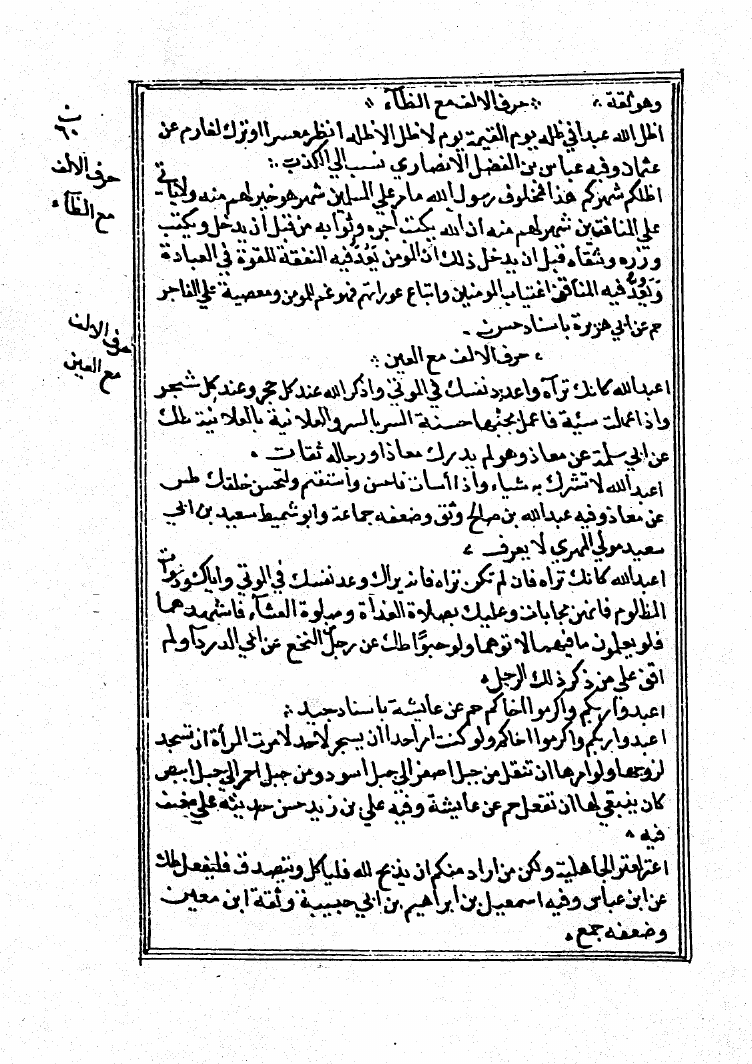 وهو ثقة ؞ ؞ حرف الالف مع الظآء ؞
اظل الله عبدا في ظله يوم القيمة يوم لا ظل الا ظله انظر معسرا او ترك لغارم عن
عثمان وفيه عباس بن الفضل الانصاري نسب الي الكذب ؞
اظلكم شهركم هذا بمحلوف رسول الله ما مر علي المسلمين شهر هو خير لهم منه ولا ياتي
علي المنافقين شهر شر لهم منه ان الله يكتب اجره وثوابه من قبل ان يدخل ويكتب
وزره وشقاه قبل ان يدخل ذلك ان المومن يعد فيه النفقة للقوة في العبادة
ويعد فيه المنافق اغتياب المومنين واتباع عوراتهم فهو غنم للمومن ومعصية علي الفاجر
حم عن ابي هريرة باسناد حسن
، حرف الالف مع العين ؞
اعبد الله كانك تراه واعدد نفسك في الموتي واذكر الله عند كل حجر وعند كل شجر
واذا عملت سيئة فاعمل بجنبها حسنة السر بالسر والعلانية بالعلانية طك
عن ابي سلمة عن معاذ وهو لم يدرك معاذا ورجاله ثقات .
اعبد الله لا تشرك به شياء واذا اسات فاحسن واستقم ولتحسن خلقك طس
عن معاذ وفيه عبد الله بن صالح وثق وضعفه جماعة وابو شميط سعيد بن ابي
سعيد مولي المهري لا يعرف
اعبد الله كانك تراه فان لم تكن تراه فانه يراك وعد نفسك في الموتي واياك ودعوات
المظلوم فانهن مجابات وعليك بصلاة الغداة وصلوة العشآء فاشهدهما
فلو يعلمون ما فيهما لاتوهما ولو حبوا طك عن رجل من النخع عن ابي الدردآ ولم
اقف علي من ذكر ذلك الرجل
اعبدوا ربكم واكرموا اخاكم حم عن عايشة باسناد جيد ؞
اعبدوا ربكم واكرموا اخاكم ولو كنت امر احدا ان يسجد لاحد لامرت المراة ان تسجد
لزوجها ولو امرها ان تنقل من جبل اصفر الي جبل اسود ومن جبل احمر الي جبل ابيض
كان ينبغي لها ان تفعل حم عن عايشة وفيه علي بن زيد حسن حديثه علي ضعف
فيه
اعتر اهل الجاهلية ولكن من اراد منكم ان يذبح لله فلياكل ويتصدق فليفعل طك
عن ابن عباس وفيه اسمعيل بن ابراهيم بن ابي حبيبة وثقة ابن معين
وضعفه جمع .
٦٠
حرف الالف
مع الظآء
حرف الالف
مع العين